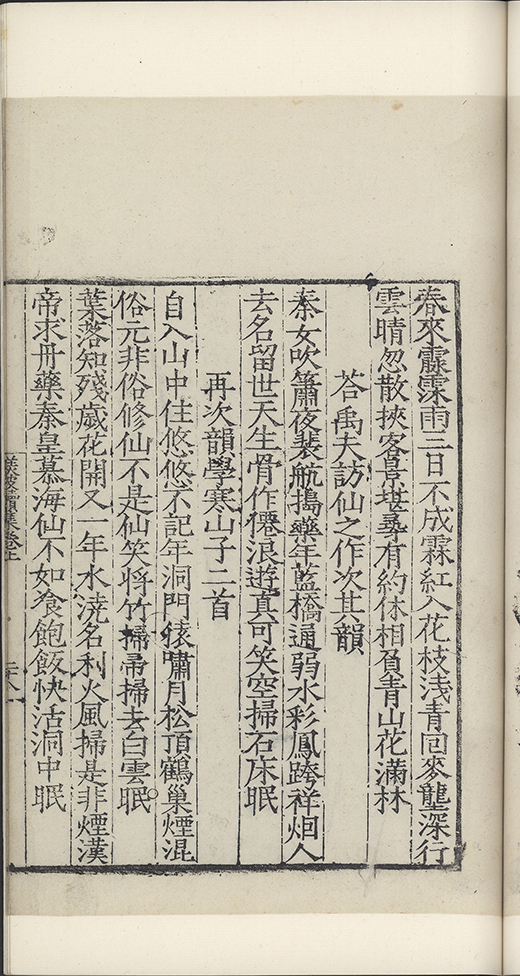 春來霡霂雨三日不成霖紅入花枝淺青回麥壟深行
雲晴忽散挾客景堪尋有約休相負青山花滿林
荅禹夫訪仙之作次其韻
秦女吹簫夜裴航搗藥年藍橋通弱水彩鳳跨祥烟人
去名留世天生骨作僊浪遊真可笑空掃石床眠
再次韻學寒山子二首
自入山中住悠悠不記年洞門猿嘯月松頂鶴巢煙混
俗元非俗修仙不是仙笑將竹掃帚掃去白雲眠
葉落知殘歲花開又一年水澆名利火風掃是非煙漢
帝求丹藥秦皇慕海仙不如飡飽飯快活洞中眠
集卷上
二十八